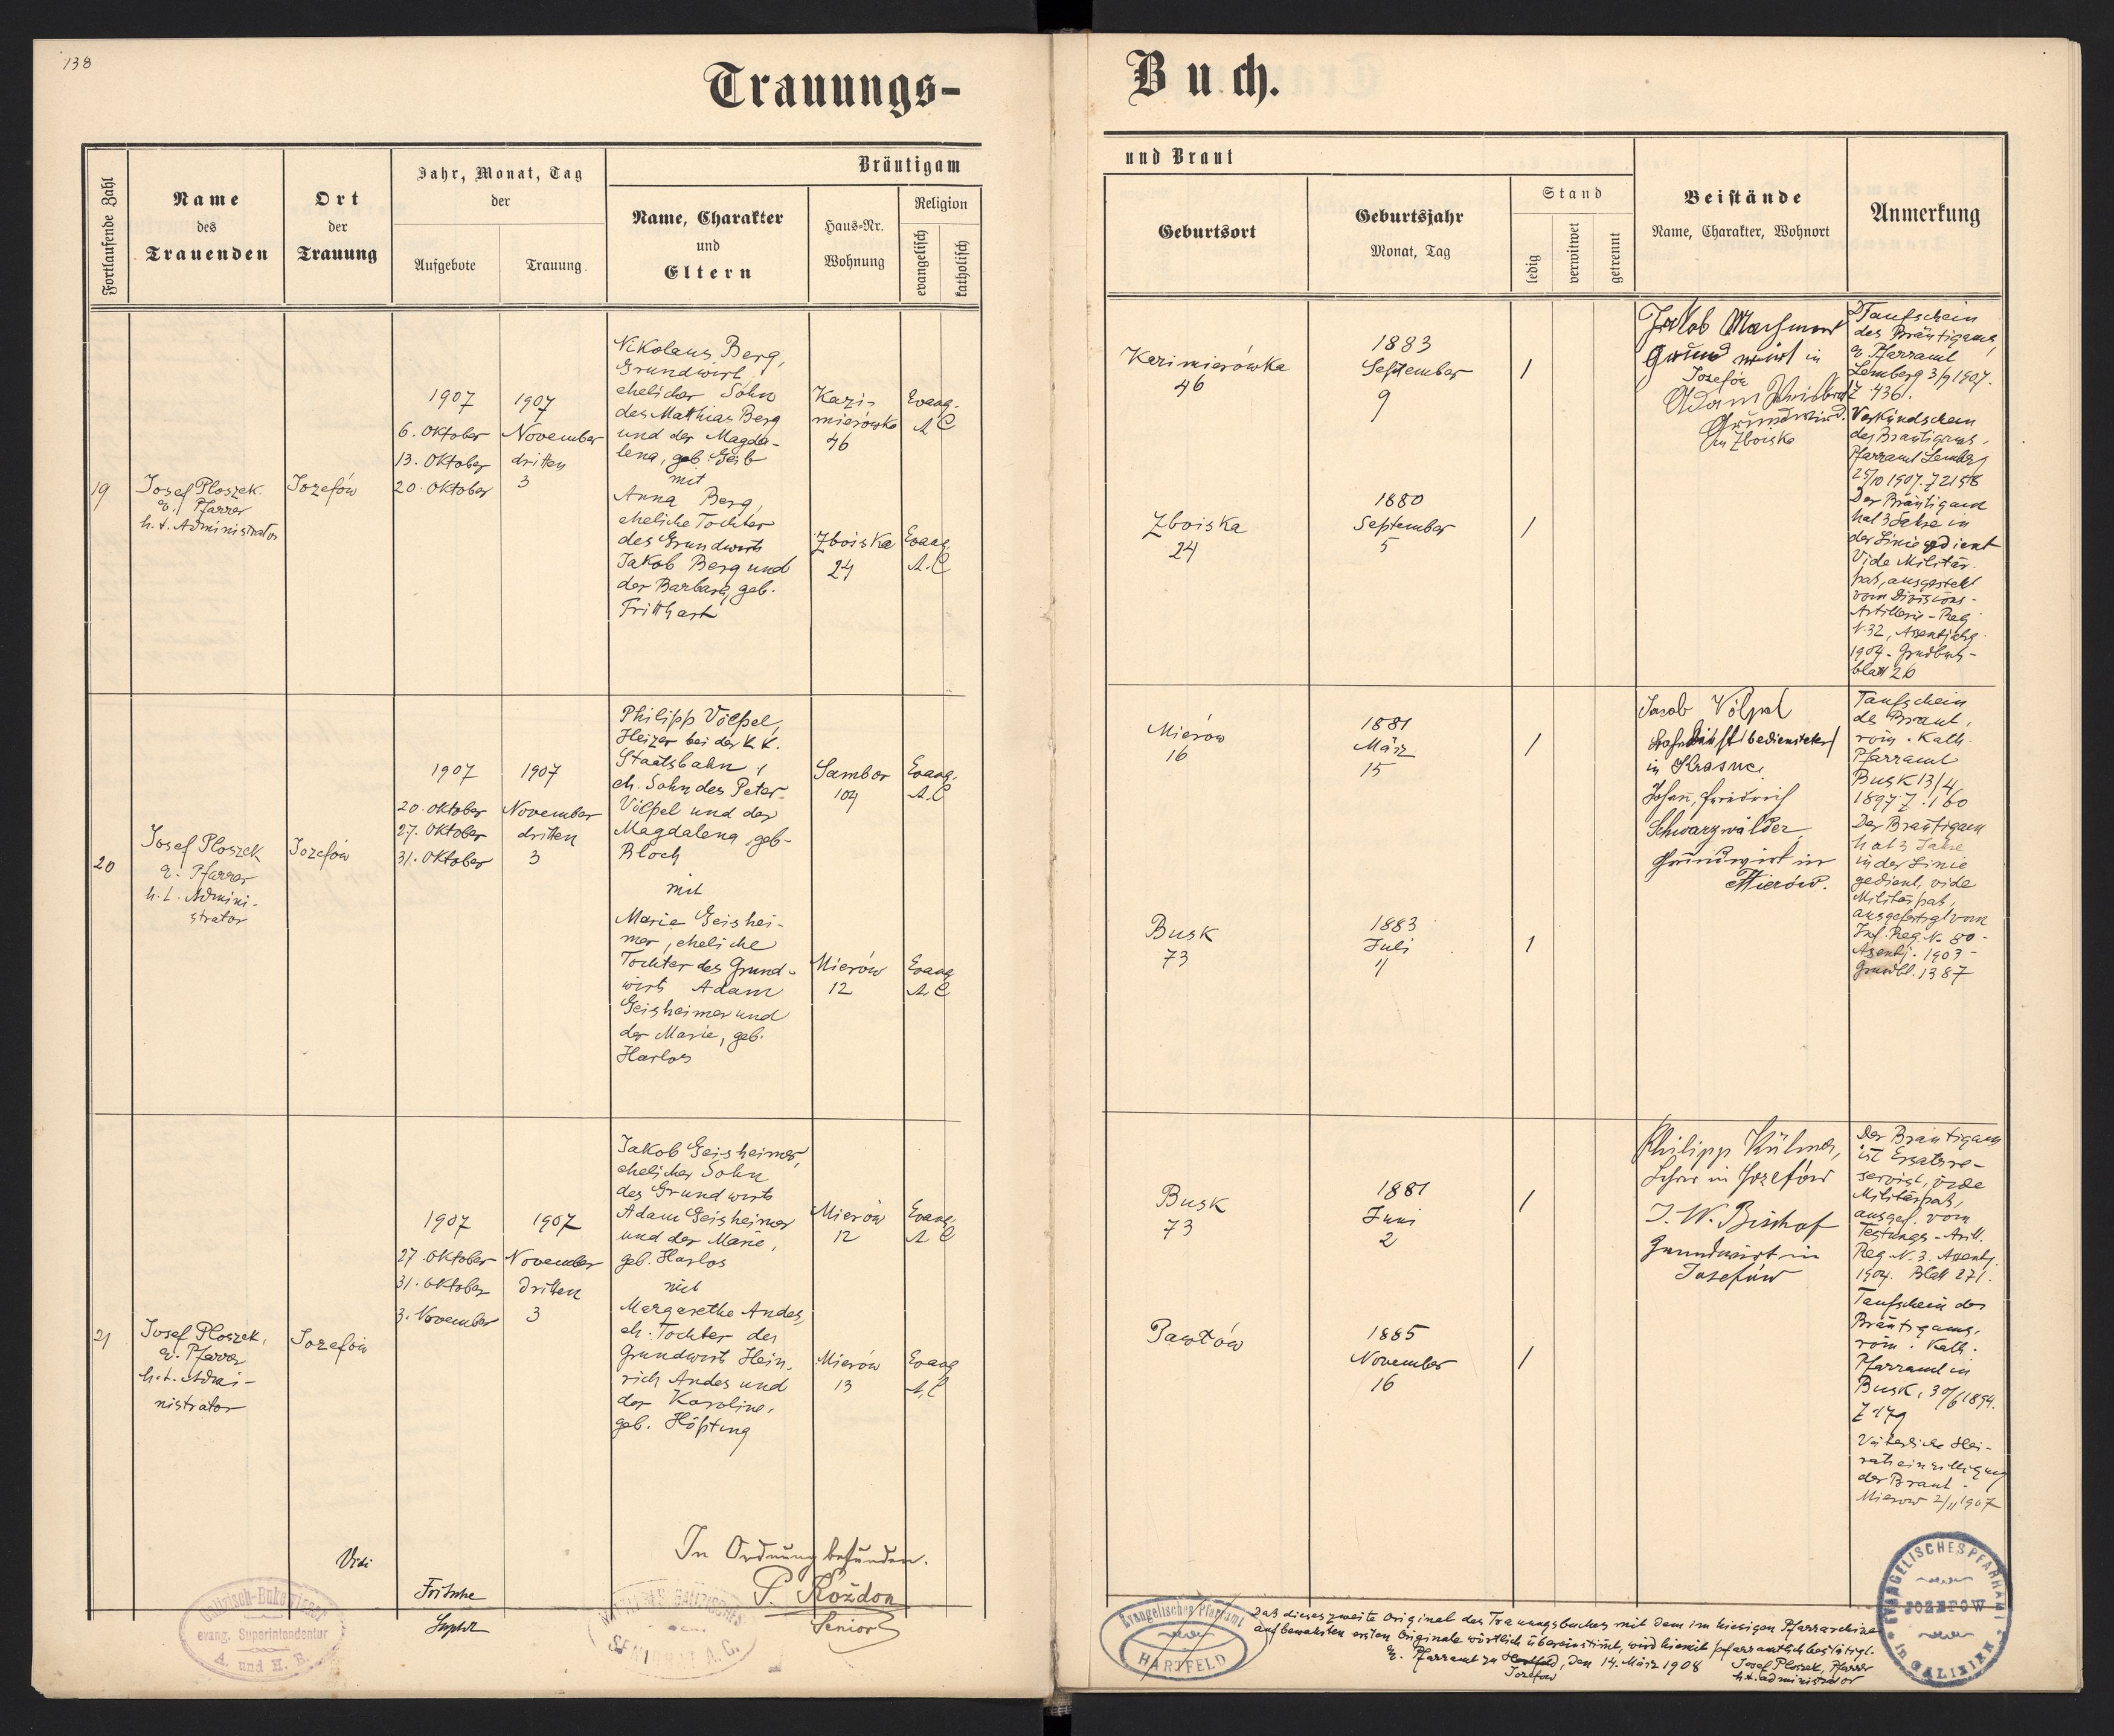 138
Trauungs-
Buch.
Fortlaufende Zahl
Name
des
Trauenden
Ort
der
Trauung
Jahr, Monat, Tag
der
Aufgebote
Trauung
Bräutigam
Name, Charakter
und
Eltern
Haus-Nr.
Wohnung
Religion
evangelisch
katholisch
und Braut
Geburtsort
Geburtsjahr
Monat, Tag
Stand
ledig
verwitwet
getrennt
Beistände
Name, Charakter, Wohnort
Anmerkung
19
Josef Ploszek
ev. Pfarrer
h. t. Administrator
Jozefów
1907
6. Oktober
13. Oktober
20. Oktober
1907
November
dritten
3
Nikolaus Berg,
Grundwirt,
ehelicher Sohn
des Mathias Berg
und der Magda-
lena, geb. Geib
mit
Anna Berg,
eheliche Tochter
des Grundwirts
Jakob Berg und
der Barbara, geb.
Fritthart
Kazi-
mierówka
46
Evang.
A C
Zboiska
24
Evang.
A. C
Kazimierówka
46
1883
September
9
1
Zboiska
24
1880
September
5
1
Jakob
Grundwirt in
Josefów
Adam
Grundwirt
in Zboiska
Taufschein
des Bräutigams,
ev. Pfarramt
Lemberg 3/9 1907.
Z 436.
Verkündschein
des Bräutigams,
Pfarramt Lemberg
25/10 1907. Z 2158
Der Bräutigam
hat 3 Jahre in
der Linie gedient
Vide Militär-
paß, ausgestellt
vom Divisions-
Artillerie-Reg
N. 32, Assentjahrg.
1904. Grundbuchs-
blatt 26
20
Josef Ploszek
ev. Pfarrer
h. t. Admini-
strator
Jozefów
1907
20. Oktober
27. Oktober
31. Oktober
1907
November
dritten
3
Philipp Völpel,
Heizer bei der K. K.
Staatsbahn,
eh. Sohn des Peter
Völpel und der
Magdalena geb.
Bloch
mit
Marie Geishei-
mer, eheliche
Tochter des Grund-
wirts Adam
Geisheimer und
der Marie, geb.
Harlos
Sambor
104
Evang.
A. C
Mierów
12
Evang
A. C
Mierów
16
1881
März
15
1
Busk
73
1883
Juli
11
1
Jacob Völpel
bediensteter
in Krasne
Johann Friedrich
Schwarzwälder
Grundwirt in
Mierów.
Taufschein
de Braut,
röm. Kath.
Pfarramt
Busk 13/4
1897 Z. 160
Der Bräutigam
hat 3 Jahre
in der Linie
gedient, vide
Militärpaß,
ausgefertigt vom
Inf. Reg. N. 80 -
Assentj. 1903 -
Grundbl. 1387
21
Josef Ploszek,
ev. Pfarrer
h. t. Admi-
nistrator
Jozefów
1907
27. Oktober
31. Oktober
3. November
1907
November
dritten
3
Jakob Geisheimer,
ehelicher Sohn
des Grundwirts
Adam Geisheimer
und der Marie,
geb. Harlos
mit
Margarethe Andes,
eh. Tochter des
Grundwirts Hein-
rich Andes und
der Karoline,
geb.
Mierów
12
Evang.
A C
Mierów
13
Evang
A. C
Busk
73
1881
Juni
2
1
Pawłów
1885
November
16
1
Philipp Kühner,
Lehrer in Jozefów
J. W. Bischof
Grundwirt in
Josefów
Der Bräutigam
ist Ersatzre-
servist, vide
Militärpaß,
ausgef. vom
Festungs-Artl.
Reg. N. 3. Assentj.
1904. Blatt 271.
Taufschein des
Bräutigams,
röm. Kath.
Pfarramt in
Busk, 30/6 1894.
Z 179
Väterliche Hei-
ratseinwilligung
der Braut.
Mierow 2/11 1907
Vidi
Fritsche
Suptdt
In Ordnung befunden.
P. Kożdon
Senior
Galizisch-Bukowinaer
evang. Superintendentur
A. und H. B.
GALIZISCHES
SENIORAT A. C.
Evangelisches Pfarramt
HARTFELD
Daß dieses zweite Original des Trauungsbuches mit dem im hiesigen Pfarrarchive
aufbewahrten ersten Originale wörtlich übereinstimmt, wird hiemit pfarramtlich bestätigt.
Ev. Pfarramt zu Hartfeld, den 14. März 1908
Jozefow
Josef Ploszek, Pfarrer
h. t. administrator
EVANGELISCHES PFARRAMT
JOZEFOW
in GALIZIEN